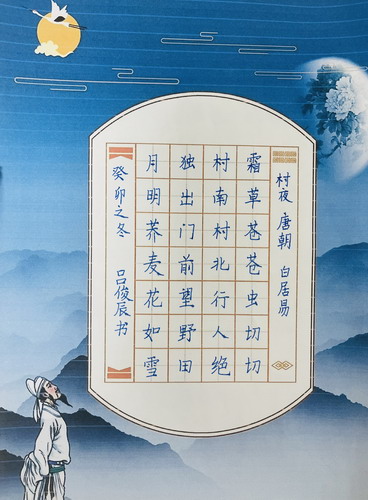 村夜 唐朝 白居易
霜草苍苍虫切切
村南村北行人绝
独出门前望野田
月明荞麦花如雪
癸卯之冬 吕俊辰书